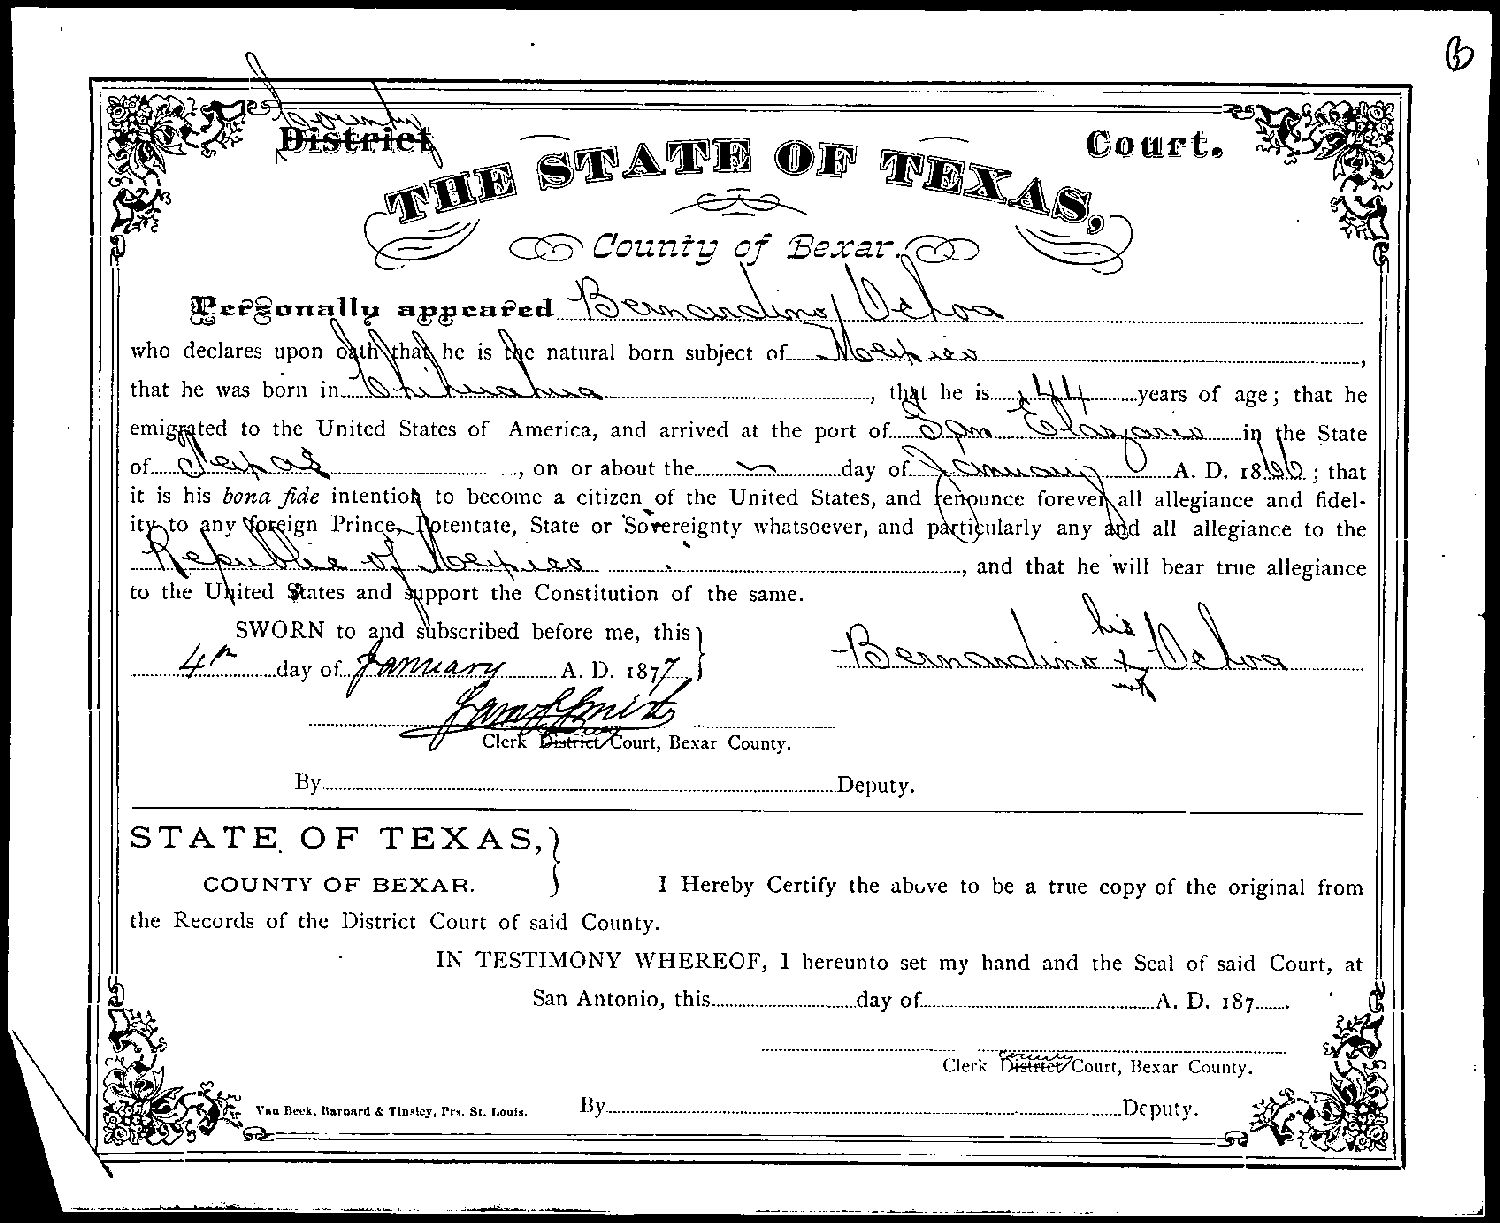 County
District Court.
THE STATE OF TEXAS,
County of Bexar.
Personally appeared Bernardino Ochoa
who declares upon oath that he is the natural born subject of Mexico,
that he was born in Chihuahua, that he is 44 years of age; that he
emigrated to the United States of America, and arrived at the port of San Elazario in the State
of Texas, on or about the day of January A. D. 1866; that
it is his bona fide intention to become a citizen of the United States, and renounce forever all allegiance and fidel-
ity to any foreign Prince, Potentate, State or Sovereignty whatsoever, and particularly any and all allegiance to the
Republic of Mexico, and that he will bear true allegiance
to the United States and support the Constitution of the same.
SWORN to and subscribed before me, this
4th day of January A. D. 1877
his
Bernardino x Ochoa
Sam S Smith
Clerk District Court, Bexar County.
By Deputy.
STATE OF TEXAS,
COUNTY OF BEXAR.
I Hereby Certify the above to be a true copy of the original from
the Records of the District Court of said County.
IN TESTIMONY WHEREOF, I hereunto set my hand and the Seal of said Court, at
San Antonio, this day of A. D. 187
County
Clerk District Court, Bexar County.
Van Beek, Barnard & Tinsley, Prs. St. Louis. By Deputy.